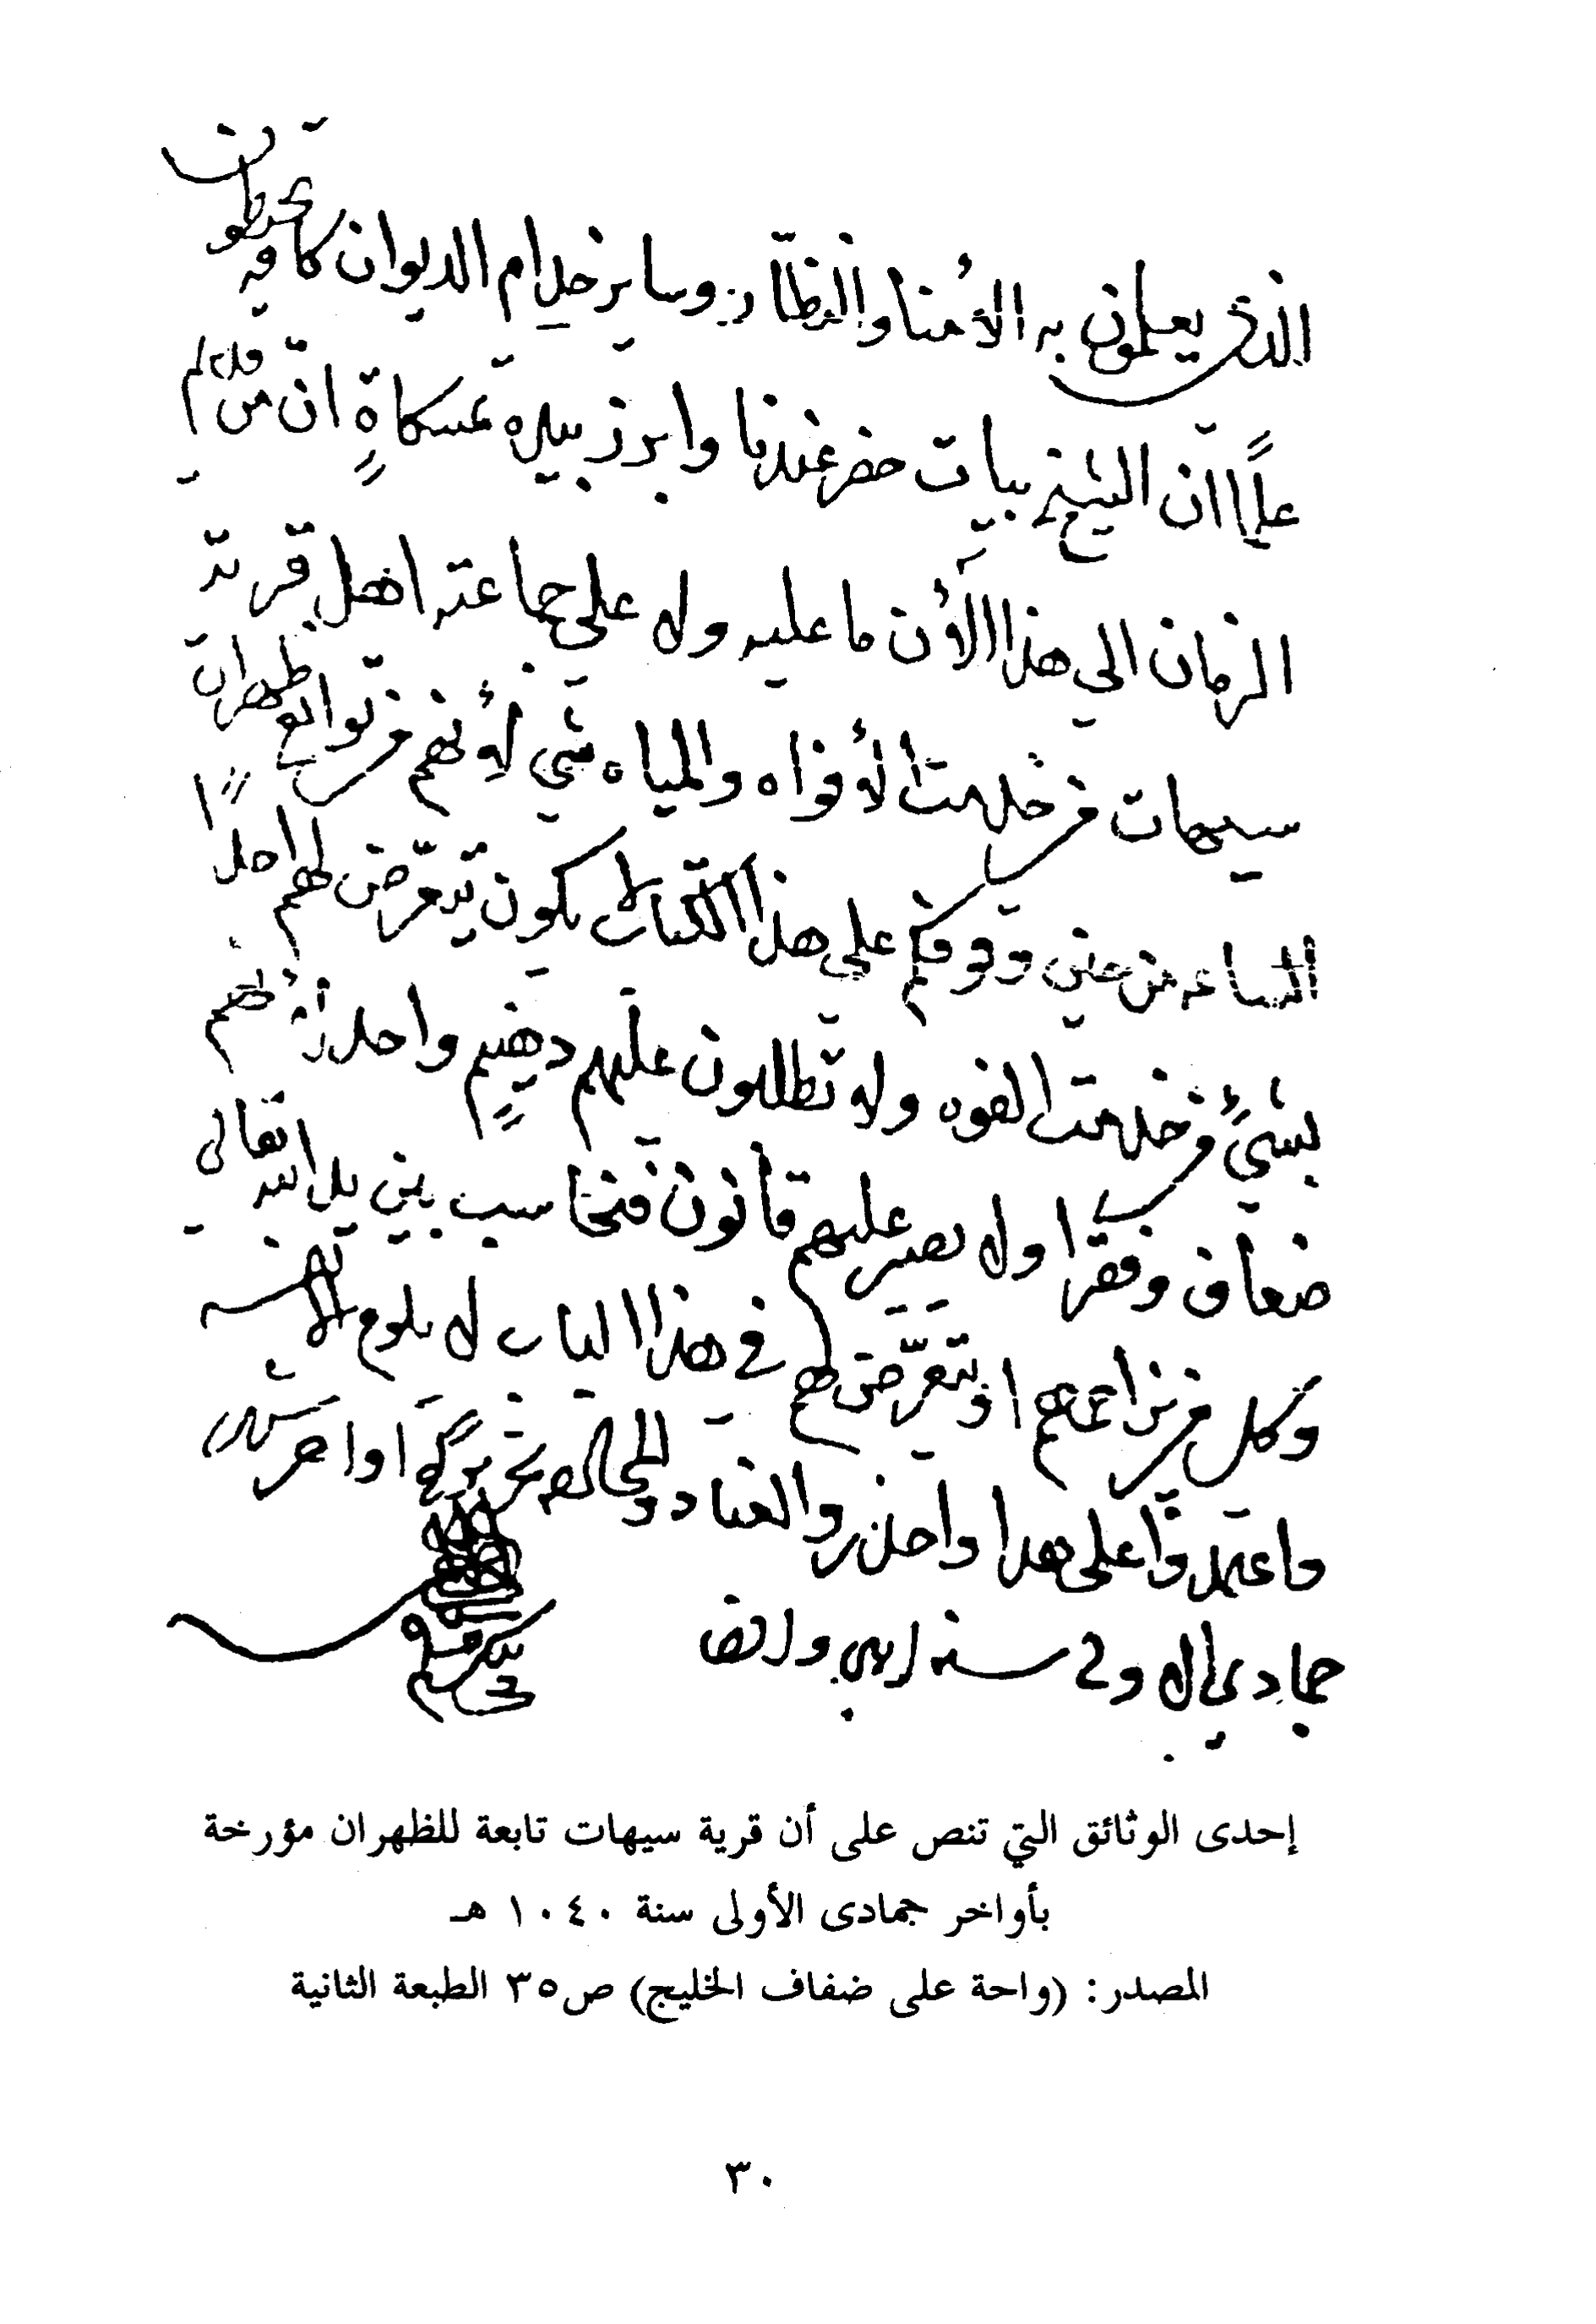 الذي يعلمون به الأمنا والنظّار وساير خدام الديوان كافه تحيطون
علماً ان الشيخ بيات حضر عندنا وابرز بيده تمسكاةٍ ان من قديم
الزمان الي هذا الأن ما عليه ولا علي جماعته اهل قرية
سيهات من خدمت الأفواه والمياه شي لأنهم من توابع ظهران
الساعه من حين وقوفكم علي هذا الكتاب لا يكون يتعرّض لهم احداً
بشيءٍ من خدمت الفوه ولا تطلبون عليهم واحد لأنهم
ضعاف وفقرا ولا يصير عليهم قانون بين يد الله تعالى
وكل من اويتعرّض لهم في هذا الباب لا يلوم الا نفسه
واعتمدوا على هدا واحذروا العناد والمخالفه اواخر شهر
جمادي الاولى سنة اربعين والف
إحدى الوثائق التي تنص على أن قرية سيهات تابعة للظهران مؤرخة
بأواخر جمادى الأولى سنة ١٠٤٠ هـ
المصدر: (واحة على ضفاف الخليج) ص٣٥ الطبعة الثانية
٣٠